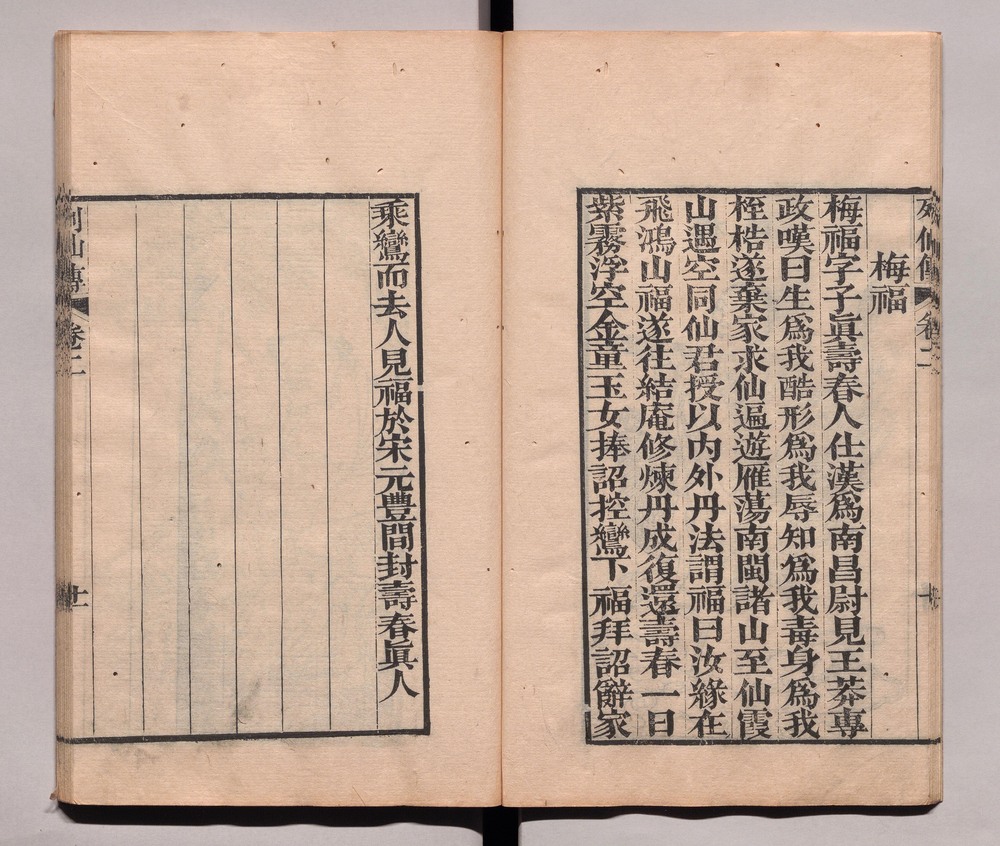 列仙傳 卷二
梅福
梅福字子眞壽春人仕漢爲南昌尉見王莽專
政嘆曰生爲我酷形爲我辱知爲我毒身爲我
桎梏遂棄家求仙遍遊雁蕩南閩諸山至仙霞
山遇空同仙君授以內外丹法謂福曰汝緣在
飛鴻山福遂往結庵修煉丹成復還壽春一日
紫霧浮空金童玉女捧詔控鸞下福拜詔辭家
乘鸞而去人見福於宋元豐間封壽春眞人
列仙傳 卷二 十一